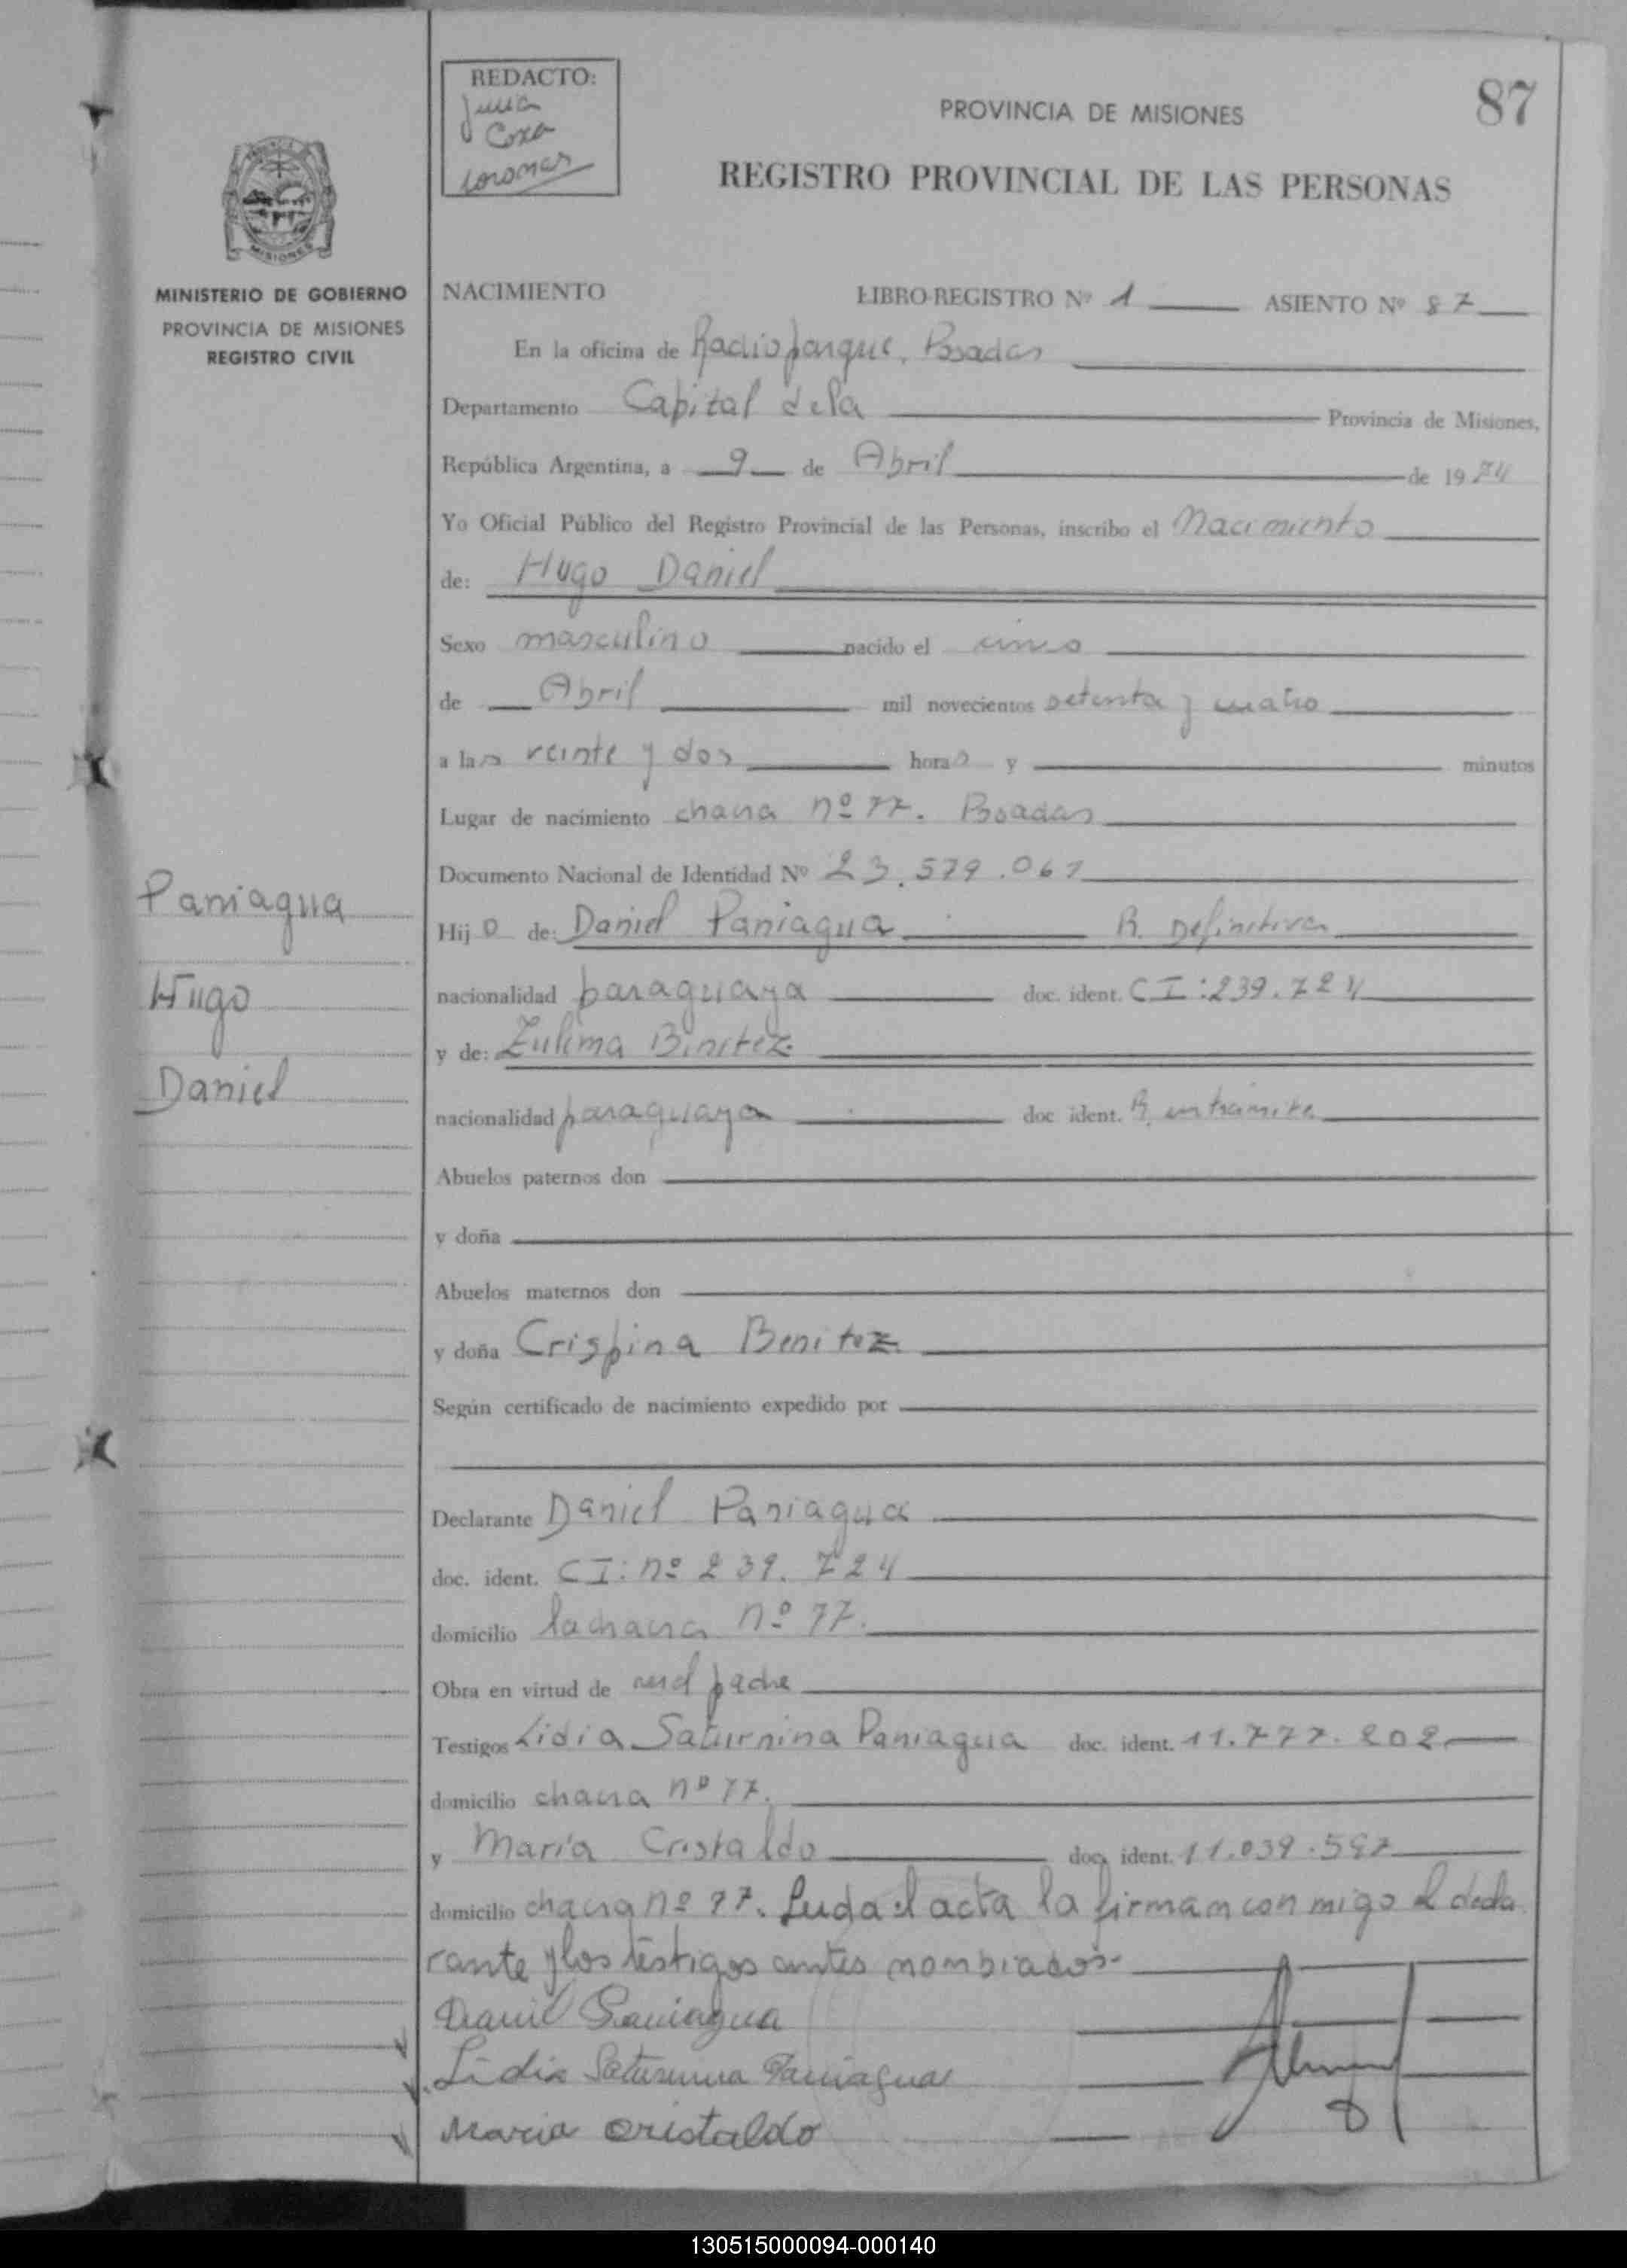 REDACTO:
87
PROVINCIA DE MISIONES
REGISTRO PROVINCIAL DE LAS PERSONAS
MISIONES
MINISTERIO DE GOBIERNO
PROVINCIA DE MISIONES
REGISTRO CIVIL
NACIMIENTO LIBRO-REGISTRO Nº 1 ASIENTO Nº 87
En la oficina de Radioparque, Posadas
Departamento Capital de la Provincia de Misiones,
República Argentina, a 9 de Abril de 1974
Yo Oficial Público del Registro Provincial de las Personas, inscribo el Nacimiento
de: Hugo Daniel
Sexo masculino nacido el cinco
de Abril mil novecientos setenta y cuatro
a las veinte y dos horas y minutos
Lugar de nacimiento chacra nº 77. Posadas
Documento Nacional de Identidad Nº 23.579.067
Paniagua
Hijo de: Daniel Paniagua R. Definitiva
Hugo
nacionalidad paraguaya doc. ident. CI: 239.724
y de: Zulema Benitez
Daniel
nacionalidad paraguaya doc ident. R. en tramite
Abuelos paternos don
y doña
Abuelos maternos don
y doña Crispina Benitez
Según certificado de nacimiento expedido por
Declarante Daniel Paniagua
doc. ident. CI: nº 239.724
domicilio la chacra nº 77.
Obra en virtud de ser el padre
Testigos Lidia Saturnina Paniagua doc. ident. 11.777.202
domicilio chacra nº 77.
y María Cristaldo doc. ident. 11.039.597
domicilio chacra nº 77. Leida el acta la firman con migo el decla
rante y los testigos antes nombrados-
Daniel Paniagua
Lidia Saturnina Paniagua
Maria cristaldo
130515000094-000140